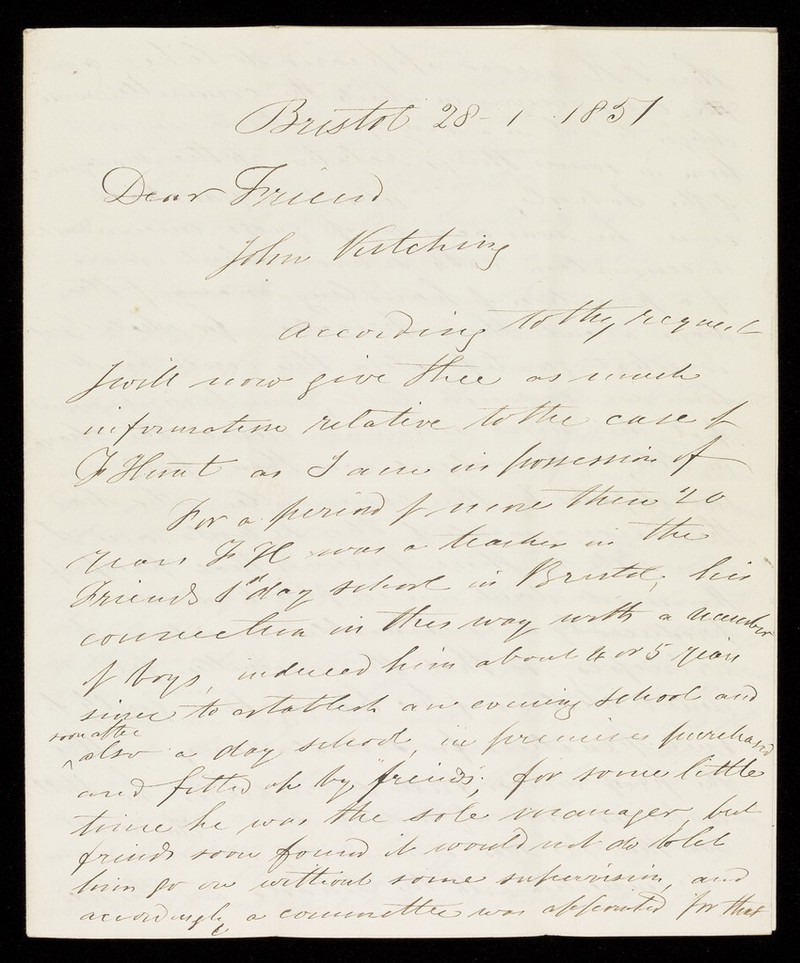 Bristol 28 - 1 - 1851
Dear Friend
John
According to thy request
I will now give thee as much
information relative to the case of
F Hunt as I am in possession of
For a period of more than 20
years F H was a teacher in the
Friends 1st day school in Bristol, his
connection in this way with a number
of boys, induced him about 4 or 5 years
since to establish an evening school and
soon after
also a day school, in premises purchased
and fitted up by "friends"; for some little
time he was the sole manager, but
friends soon found it would not do to let
him go on without some supervision, and
accordingly a committee was appointed for that